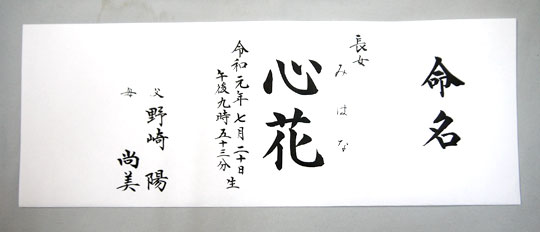 命名
長女
みはな
心花
令和元年七月二十日
午後九時五十三分 生
父 野崎 陽
母 尚美